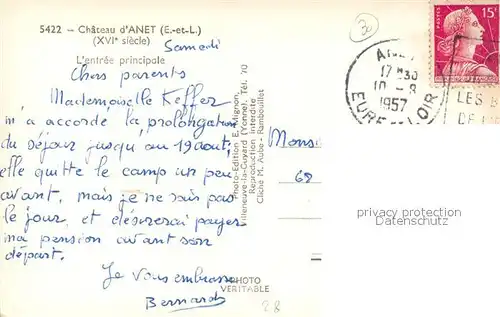 5422 - Château d'ANET (E.-et-L.)
(XVIe siècle)
L'entrée principale
Samedi
Chers parents
Mademoiselle Keffer
m'a accordé la prolongation
du séjour jusqu'au 19 août,
elle quitte le camp un peu
avant, mais je ne sais pas
le jour, et désirerai payer
ma pension avant son
départ.
Je vous embrasse
Bernard
Photo-Edition E. Mignon,
Villeneuve-la-Guyard (Yonne). Tél. 70
Reproduction interdite
Cliché M. Aube - Rambouillet
PHOTO
VERITABLE
Monsi
68
28
30
15F
POSTES
17 H30
10 -8
1957
EURE-ET-LOIR
LES B
privacy protection
Datenschutz